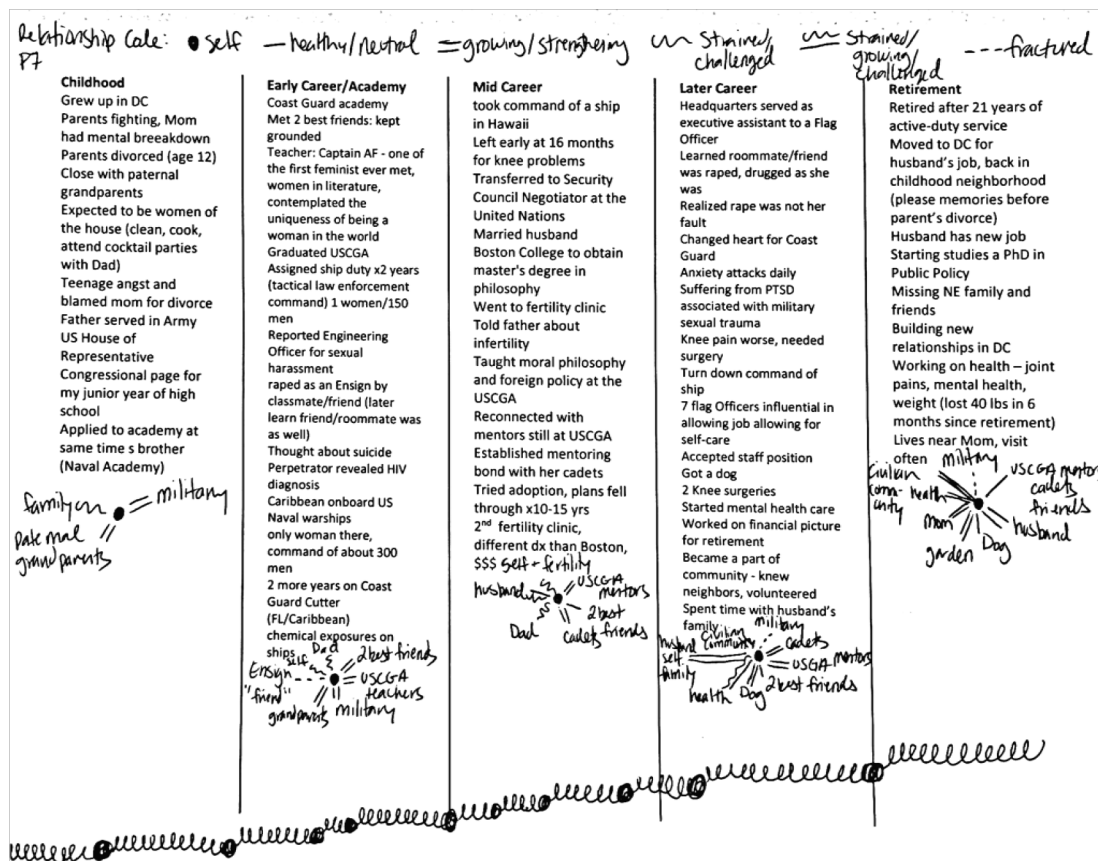 Relationship Code: self healthy/neutral growing/strengthering strained/challenged strained/growing/challenged fractured
P7
Childhood
Grew up in DC
Parents fighting, Mom
had mental breeakdown
Parents divorced (age 12)
Close with paternal
grandparents
Expected to be women of
the house (clean, cook,
attend cocktail parties
with Dad)
Teenage angst and
blamed mom for divorce
Father served in Army
US House of
Representative
Congressional page for
my junior year of high
school
Applied to academy at
same time s brother
(Naval Academy)
family
military
paternal
grandparents
Early Career/Academy
Coast Guard academy
Met 2 best friends: kept
grounded
Teacher: Captain AF - one of
the first feminist ever met,
women in literature,
contemplated the
uniqueness of being a
woman in the world
Graduated USCGA
Assigned ship duty x2 years
(tactical law enforcement
command) 1 women/150
men
Reported Engineering
Officer for sexual
harassment
raped as an Ensign by
classmate/friend (later
learn friend/roommate was
as well)
Thought about suicide
Perpetrator revealed HIV
diagnosis
Caribbean onboard US
Naval warships
only woman there,
command of about 300
men
2 more years on Coast
Guard Cutter
(FL/Caribbean)
chemical exposures on
ships
Dad
self
2 best friends
Ensign
"friend"
USCGA
teachers
grandparents
military
Mid Career
took command of a ship
in Hawaii
Left early at 16 months
for knee problems
Transferred to Security
Council Negotiator at the
United Nations
Married husband
Boston College to obtain
master's degree in
philosophy
Went to fertility clinic
Told father about
infertility
Taught moral philosophy
and foreign policy at the
USCGA
Reconnected with
mentors still at USCGA
Established mentoring
bond with her cadets
Tried adoption, plans fell
through x10-15 yrs
2nd fertility clinic,
different dx than Boston,
$$$ self + fertility
husband
USCGA
mentors
Dad
2 best
friends
cadets
Later Career
Headquarters served as
executive assistant to a Flag
Officer
Learned roommate/friend
was raped, drugged as she
was
Realized rape was not her
fault
Changed heart for Coast
Guard
Anxiety attacks daily
Suffering from PTSD
associated with military
sexual trauma
Knee pain worse, needed
surgery
Turn down command of
ship
7 flag Officers influential in
allowing job allowing for
self-care
Accepted staff position
Got a dog
2 Knee surgeries
Started mental health care
Worked on financial picture
for retirement
Became a part of
community - knew
neighbors, volunteered
Spent time with husband's
family
husband
self
family
civilian
community
military
cadets
USGA mentors
2 best friends
Dog
health
Retirement
Retired after 21 years of
active-duty service
Moved to DC for
husband's job, back in
childhood neighborhood
(please memories before
parent's divorce)
Husband has new job
Starting studies a PhD in
Public Policy
Missing NE family and
friends
Building new
relationships in DC
Working on health – joint
pains, mental health,
weight (lost 40 lbs in 6
months since retirement)
Lives near Mom, visit
often
military
civilian
community
health
USCGA mentors
cadets
friends
husband
Mom
garden
Dog